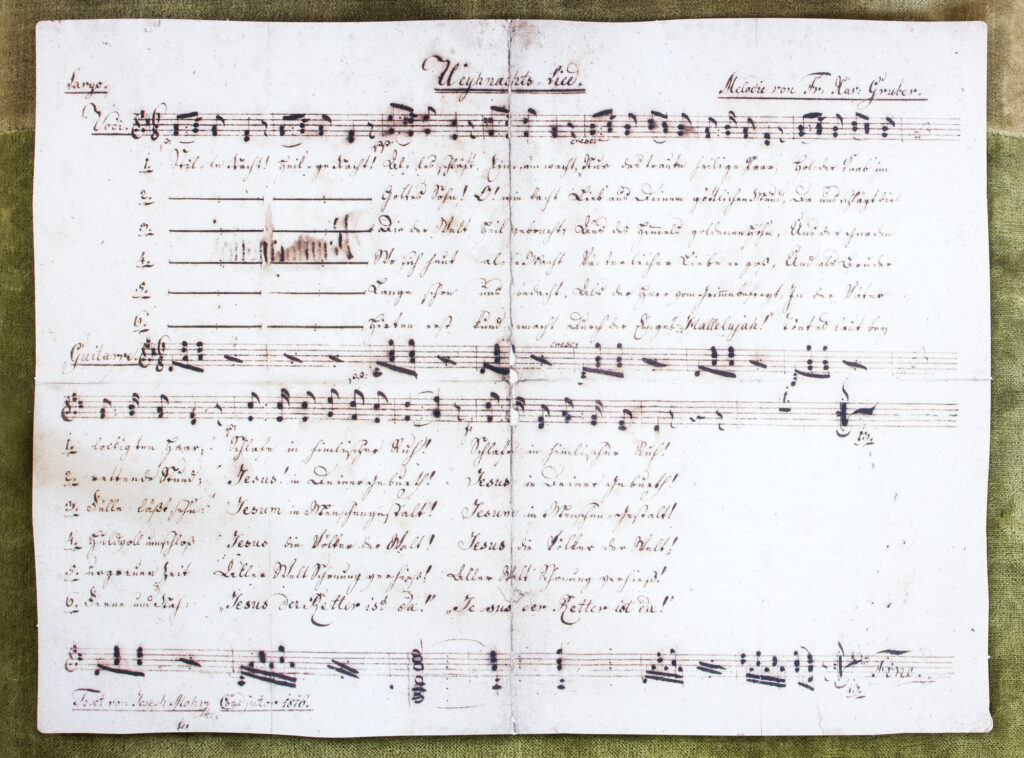 Weyhnachts-Lied.
Largo. Melodie von Fr. Xav. Gruber.
Voci.
cresc:
1. Stille Nacht! Heilige Nacht! Alles schläft, Einsam wacht, Nur das traute heilige Paar, Holder Knab im
2. Gottes Sohn! O! wie lacht Lieb aus Deinem göttlichen Mund, Da uns schlägt die
3. Die der Welt Heil gebracht, Aus des Himmels goldenen Höhn, Aus der Gnaden
4. Wo sich heut alle Macht Väterlicher Liebe ergoß, Und als Bruder
5. Lange schon uns bedacht, Als der Herr vom Grimme befreyt, In der Väter
6. Hirten erst kund gemacht Durch der Engel Hallelujah! Tönt es laut bey
cresc:
Guitarre.
1. lockigten Haar; Schlafe in himlischer Ruh! Schlafe in himlischer Ruh!
2. rettende Stund; Jesus! in Deiner Geburth! Jesus in Deiner Geburth!
3. Fülle läßt sehn: Jesum in Menschengestalt! Jesum in Menschengestalt!
4. Huldvoll umschloß Jesus die Völker der Welt! Jesus die Völker der Welt!
5. urgrauen Zeit Aller Welt Schonung verhieß! Aller Welt Schonung verhieß!
6. Ferne und Nah: „Jesus der Retter ist da!" „Jesus der Retter ist da!"
Fine.
Text von Joseph Mohr Coadjutor 1816.